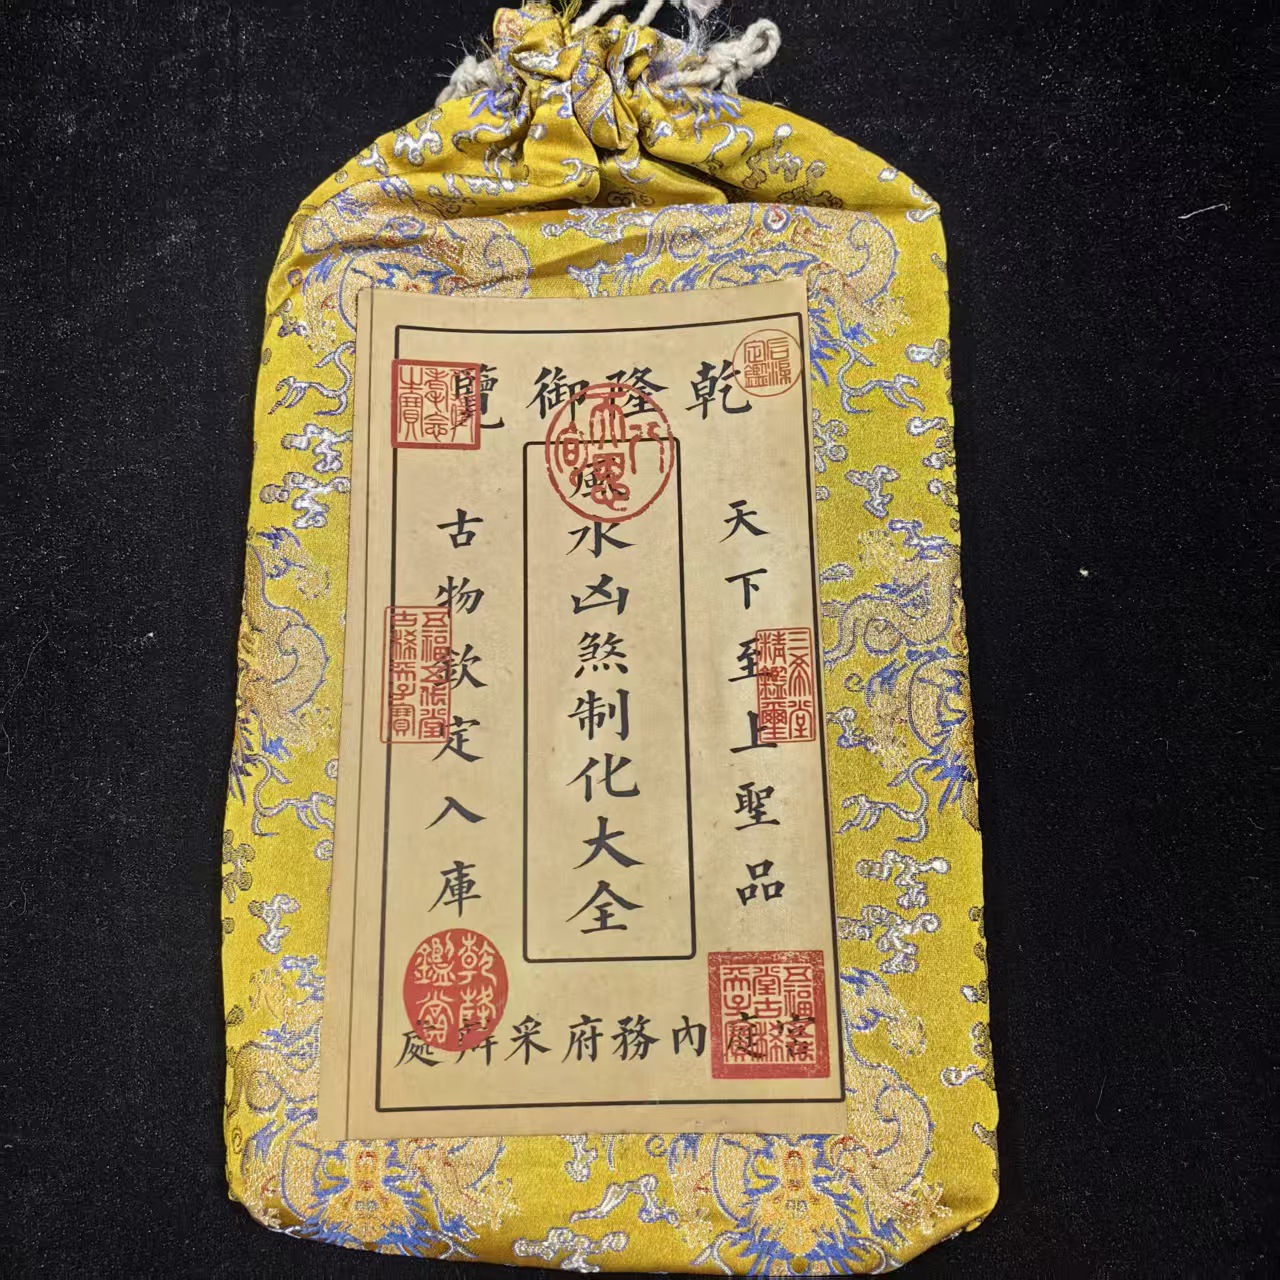 乾隆御覽
天下至上聖品
風水凶煞制化大全
古物欽定入庫
宮庭內務府采辦處
八徵耄念之寶
三希堂精鑑璽
五福五代堂古稀天子寶
乾隆鑑賞
五福五代堂古稀天子寶